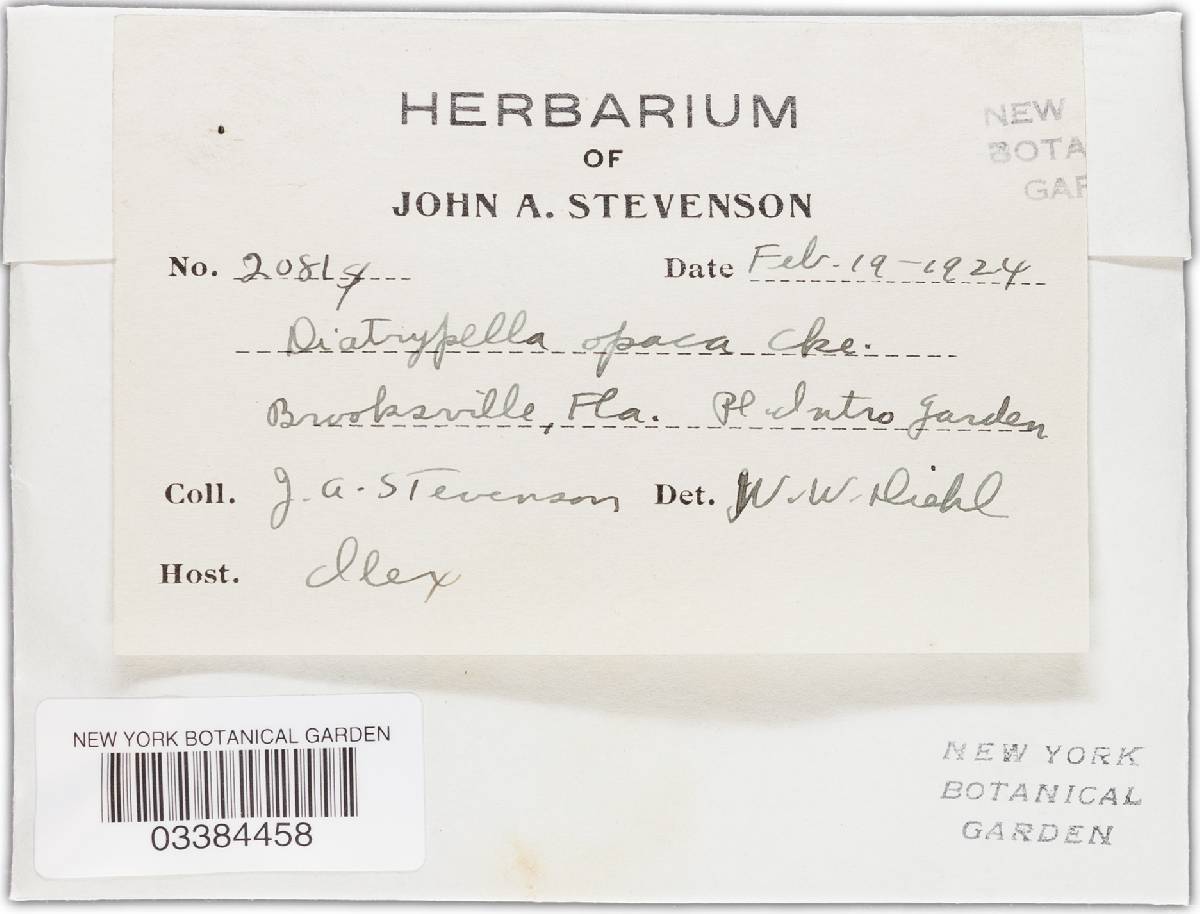 HERBARIUM
OF
JOHN A. STEVENSON
NEW
BOTA
GAR
No. Date Feb. 19-1924
Diatrypella opaca Cke.
Brooksville, Fla. Pl. Intro Garden
Coll. J. A. Stevenson Det. W. W. Diehl
Host. Ilex
NEW YORK BOTANICAL GARDEN
03384458
NEW YORK
BOTANICAL
GARDEN